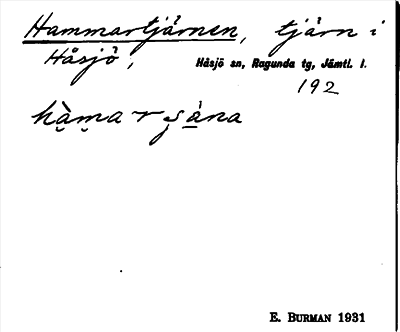 Hammartjärnen, tjärn i
Håsjö, Håsjö sn, Ragunda tg, Jämtl. l.
192
E. BURMAN 1931